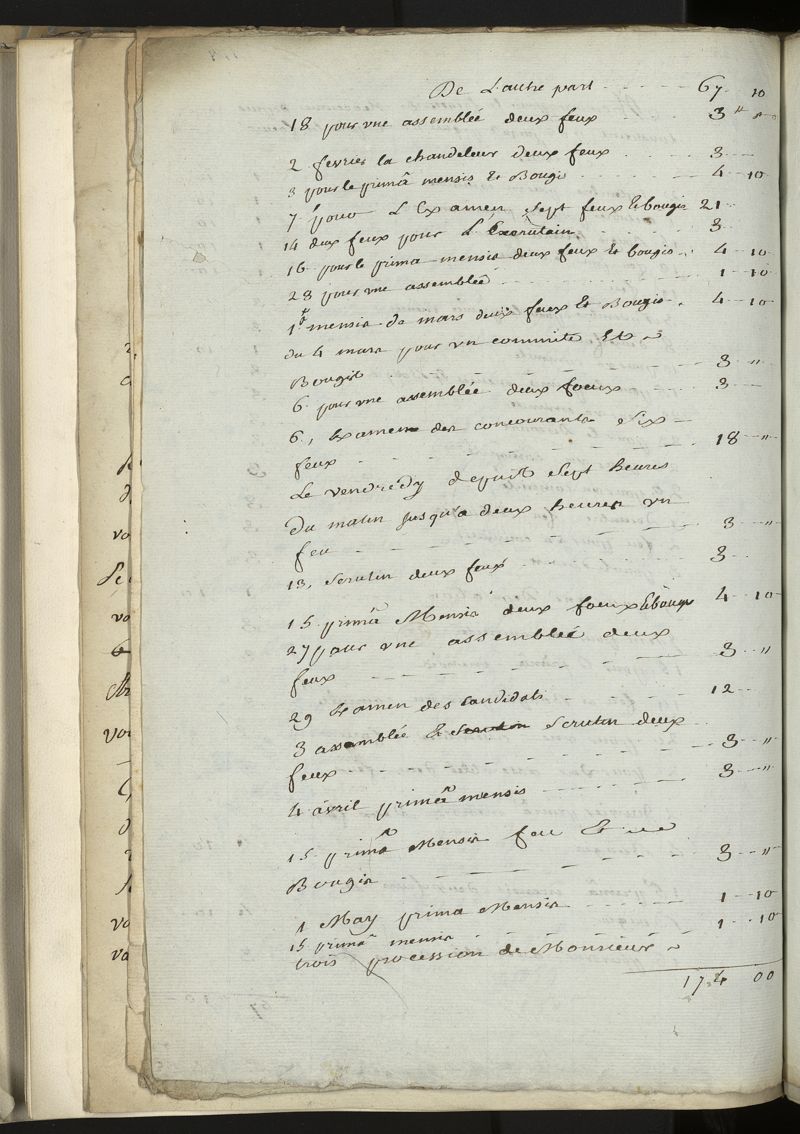 De L'autre part - - - - 67 - 10
18 pour une assemblée deux feux . . . . 3 "
2 fevrier la chandeleur deux feux . . . . 3 —
3 pour le primâ mensis Et Bougis . . . . 4 - 10
7 pour L'Examen Sept feux Et bougis 21 -
14 deux feux pour L'Excrutain . . . . 3
16 pour le prima mensis deux feux Et bougis . . 4 - 10
28 pour une assemblée - - - - 1 - 10
1er mensis de mars deux feux Et Bougis . . 4 - 10
du 4 mars pour un committé Et
Bougis - - - - 3 - "
6 pour une assemblée deux foeux - - - 3 —
6, Examen des concourants Six
feux - - - - 18 - "
Le vendredy depuis Sept heures
du matin jusqu'a deux heures un
feu - - - - 3 - "
13, Scrutin deux feux - - - 3 -
15 primâ Mensis deux foeux Et bougis 4 - 10
27 pour une assemblée deux
feux - - - - 3 - "
29 Examen des Candidats - - - 12 -
3 assemblée Et Scrutin Scrutin deux
feux - - - - 3 - "
4 avril primâ mensis - - - - 3 - "
15 primâ Mensis feu Et
Bougis - - - - 3 - "
1 May prima Mensis - - - - 1 - 10
15 primâ mensis - - - - 1 - 10
trois procession de Monsieur
174 00